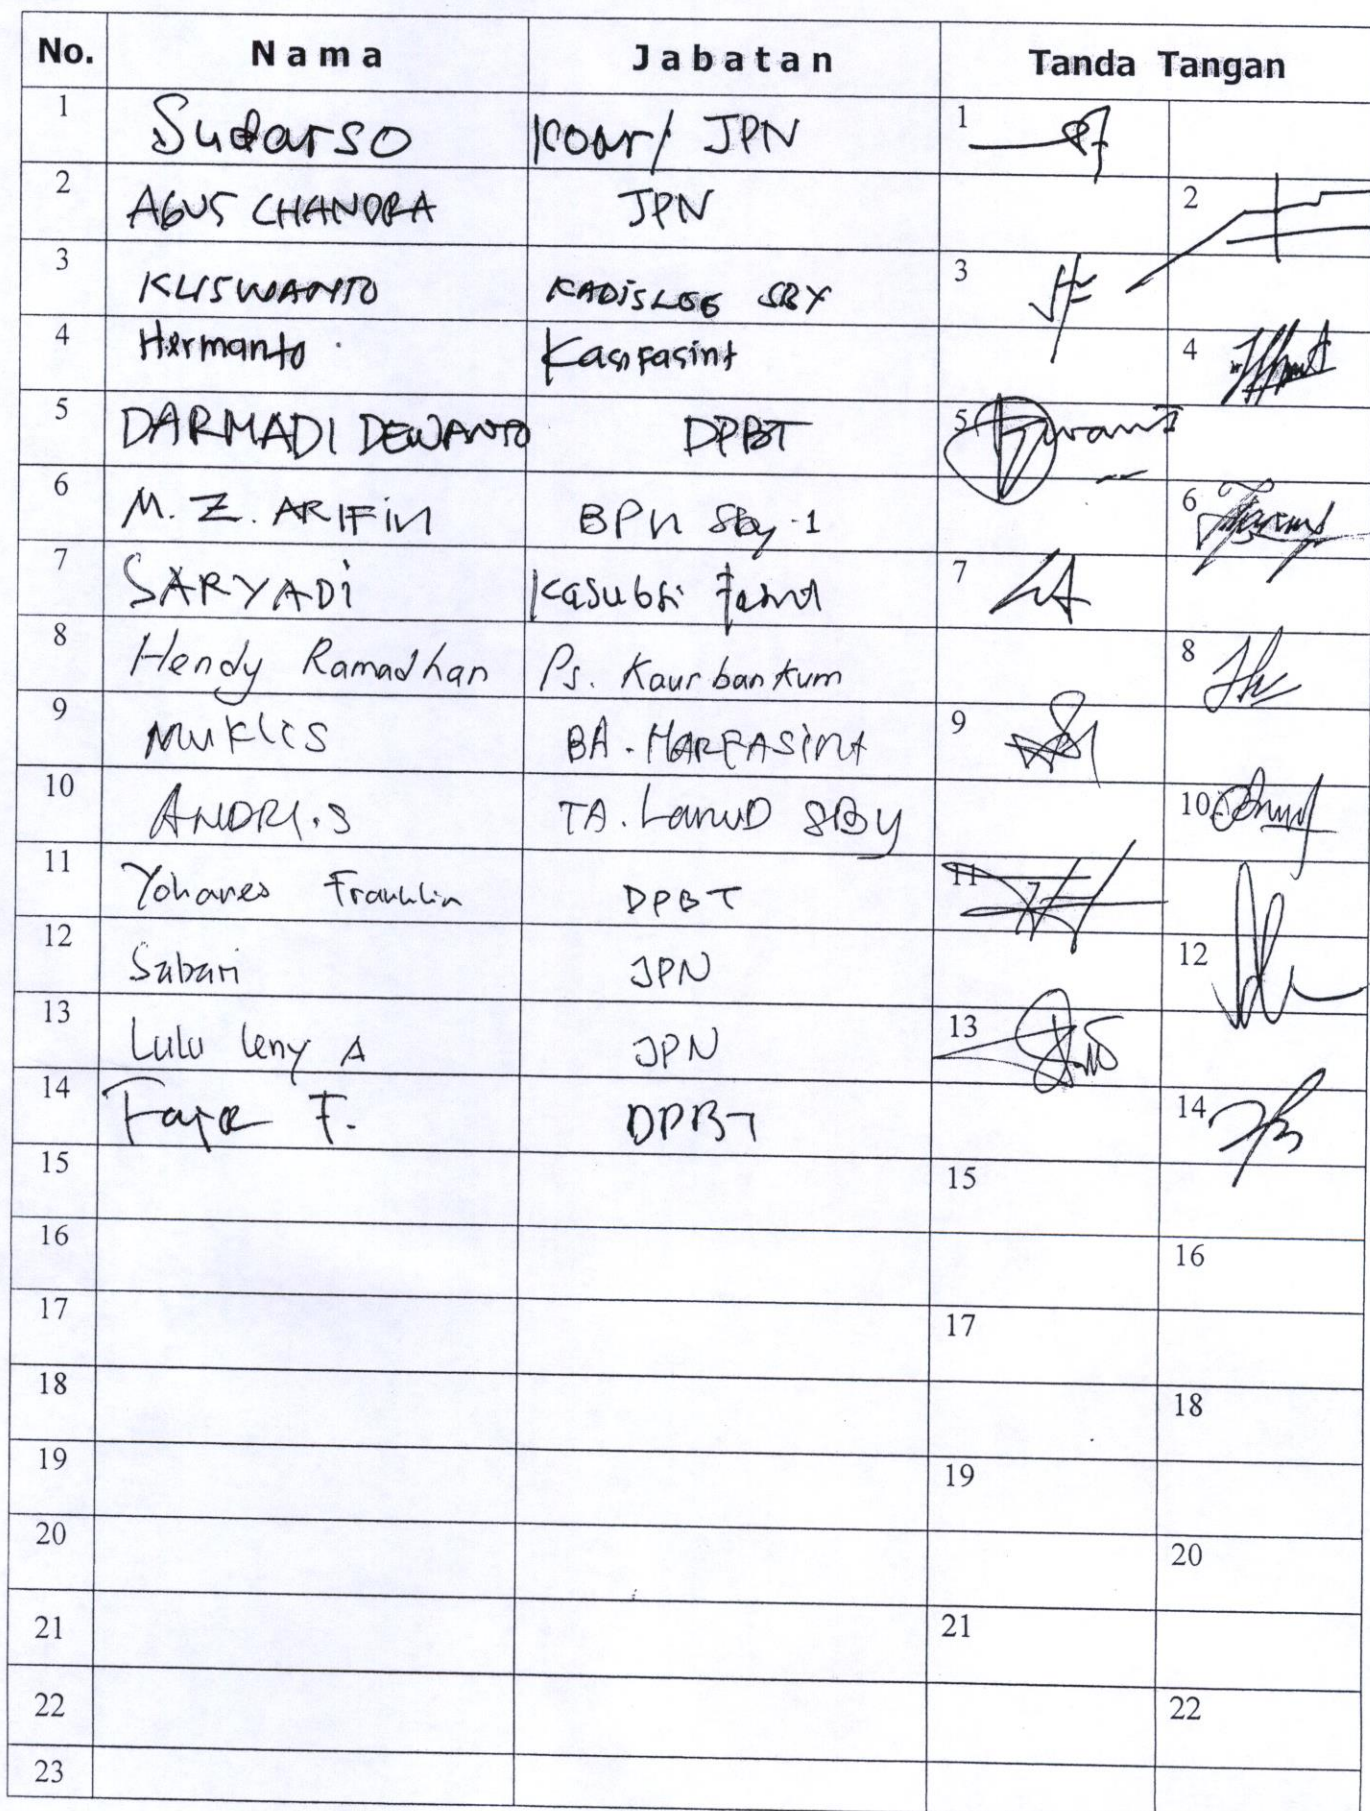 No. Nama Jabatan Tanda Tangan
1 Sudarso JPN 1
2 AGUS CHANDRA JPN 2
3 KUSWANTO KADISLOG SBY 3
4 Hermanto Kasifasint 4
5 DARMADI DEWANTO DPBT 5
6 M. Z. ARIFIN BPN Sby 1 6
7 SARYADI Kasubsi Fasint 7
8 Hendy Ramadhan Ps. Kaurbankum 8
9 MUKLIS BA. HARFASINT 9
10 ANDRI.S TA. Lanud SBY 10
11 Yohanes Franklin DPBT 11
12 Sabari JPN 12
13 Lulu Leny A JPN 13
14 F. DPBT 14
15 15
16 16
17 17
18 18
19 19
20 20
21 21
22 22
23